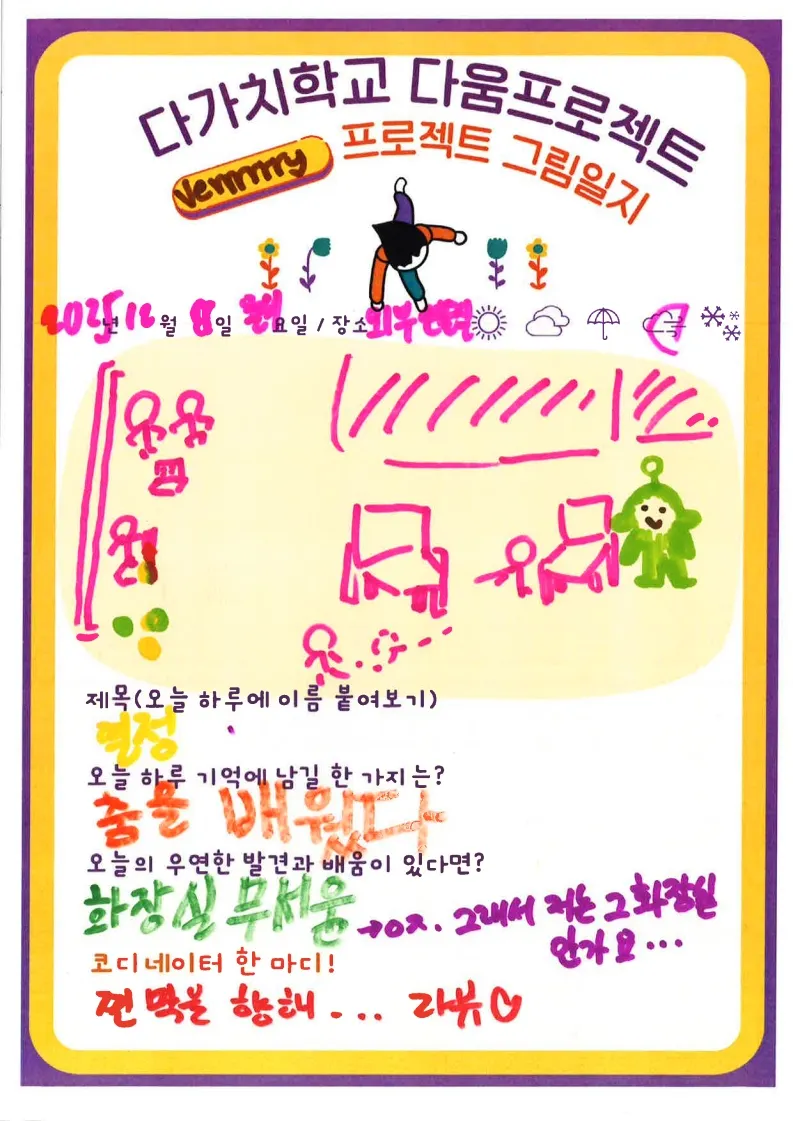 다가치학교 다움프로젝트
프로젝트 그림일지
2025년 12월 8일 월요일 / 장소 외부
제목(오늘 하루에 이름 붙여보기)
열정
오늘 하루 기억에 남길 한 가지는?
춤을 배웠다
오늘의 우연한 발견과 배움이 있다면?
화장실 무서움
→ㅇㅈ. 그래서 저는 그 화장실
안가요...
코디네이터 한 마디!
찐 막을 향해 ... 라뷰♡